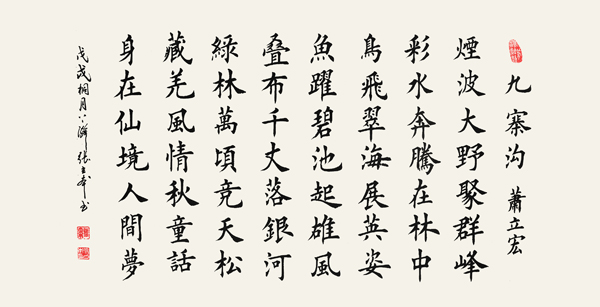 九寨沟 萧立宏
煙波大野聚群峰
彩水奔騰在林中
鳥飛翠海展英姿
魚躍碧池起雄風
叠布千丈落銀河
綠林萬頃竞天松
藏羌風情秋童話
身在仙境人間夢
戊戌桐月